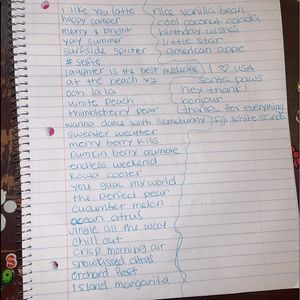 I like you latte
happy camper
merry & bright
yay summer
surfside spritzer
# selfie
laughter is the best medicine
at the beach x2
ooh lala
white peach
thimbleberry pear
wanna dance with somebunny
sweater weather
merry berry kiss
pumkin berry crumble
endless weekend
koala cooler
you guac my world
the perfect pear
cucumber melon
ocean citrus
jingle all the way
chill out
crisp morning air
snowkissed citrus
orchard
island margarita
nice vanilla bean
cool coconut colada
birthday wishes
little star
american apple
I ♡ USA
santa paws
hey thank!
bonjour
thanks for everything
fiji white sands